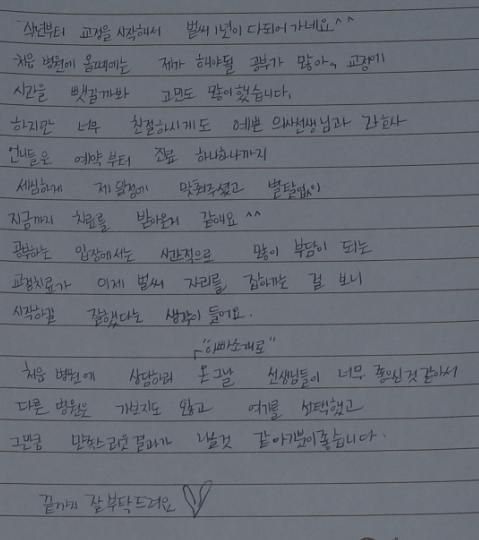 작년부터 교정을 시작해서 벌써 1년이 다되어가네요^^
처음 병원에 올때에는 제가 해야될 공부가 많아, 교정에
시간을 뺏길까봐 고민도 많이했습니다.
하지만 너무 친절하시게도 예쁜 의사선생님과 간호사
언니들은 예약부터 진료 하나하나까지
세심하게 제 일정에 맞춰주셨고 별탈없이
지금까지 치료를 받아온거 같애요^^
공부하는 입장에서는 시간적으로 많이 부담이 되는
교정치료가 이제 벌써 자리를 잡아가는 걸 보니
시작하길 잘했다는 생각이 들어요.
"아빠소개로"
처음 병원에 상담하러 온그날 선생님들이 너무 좋으신것 같아서
다른 병원은 가보지도 않고 여기를 선택했고
그만큼 만족스러운 결과가 나올것 같아기분이좋습니다.
끝까지 잘부탁드려요♡